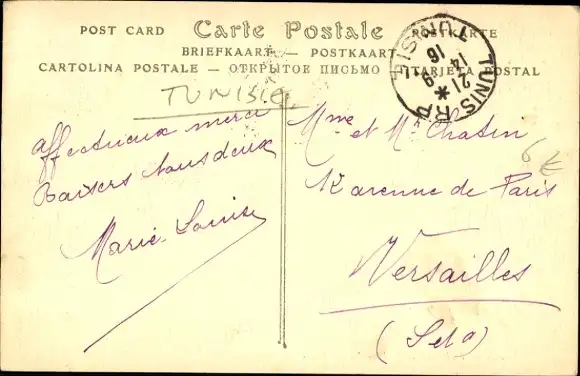 POST CARD Carte Postale POSTKARTE
BRIEFKAART — POSTKAART
CARTOLINA POSTALE — ОТКРЫТОЕ ПИСЬМО — TARJETA POSTAL
TUNISIE
TUNIS R.P
TUNISIE
14 16
21 9
affectueux merci
Baisers tous deux
Marie-Louise
Mme et Mr Chatin
12 avenue de Paris
6€
Versailles
(S et O)